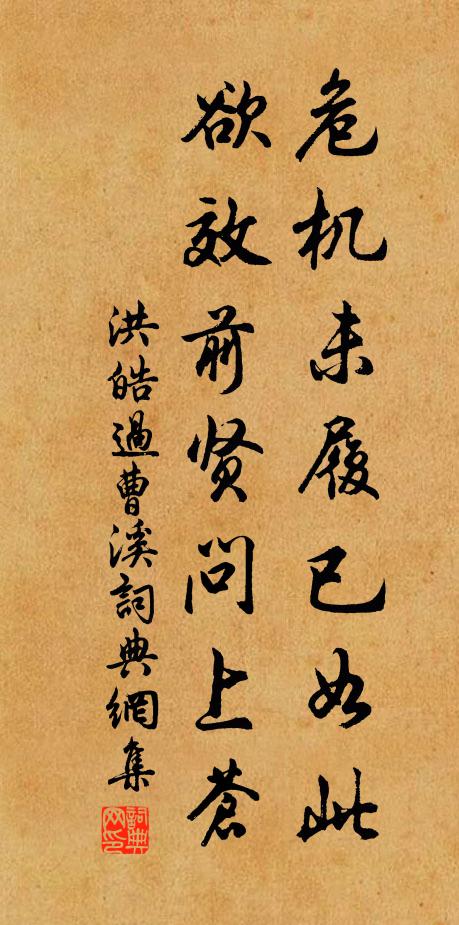 危机未履已如此
欲效前贤问上苍
洪皓過曹溪詞典網集
詞典網印